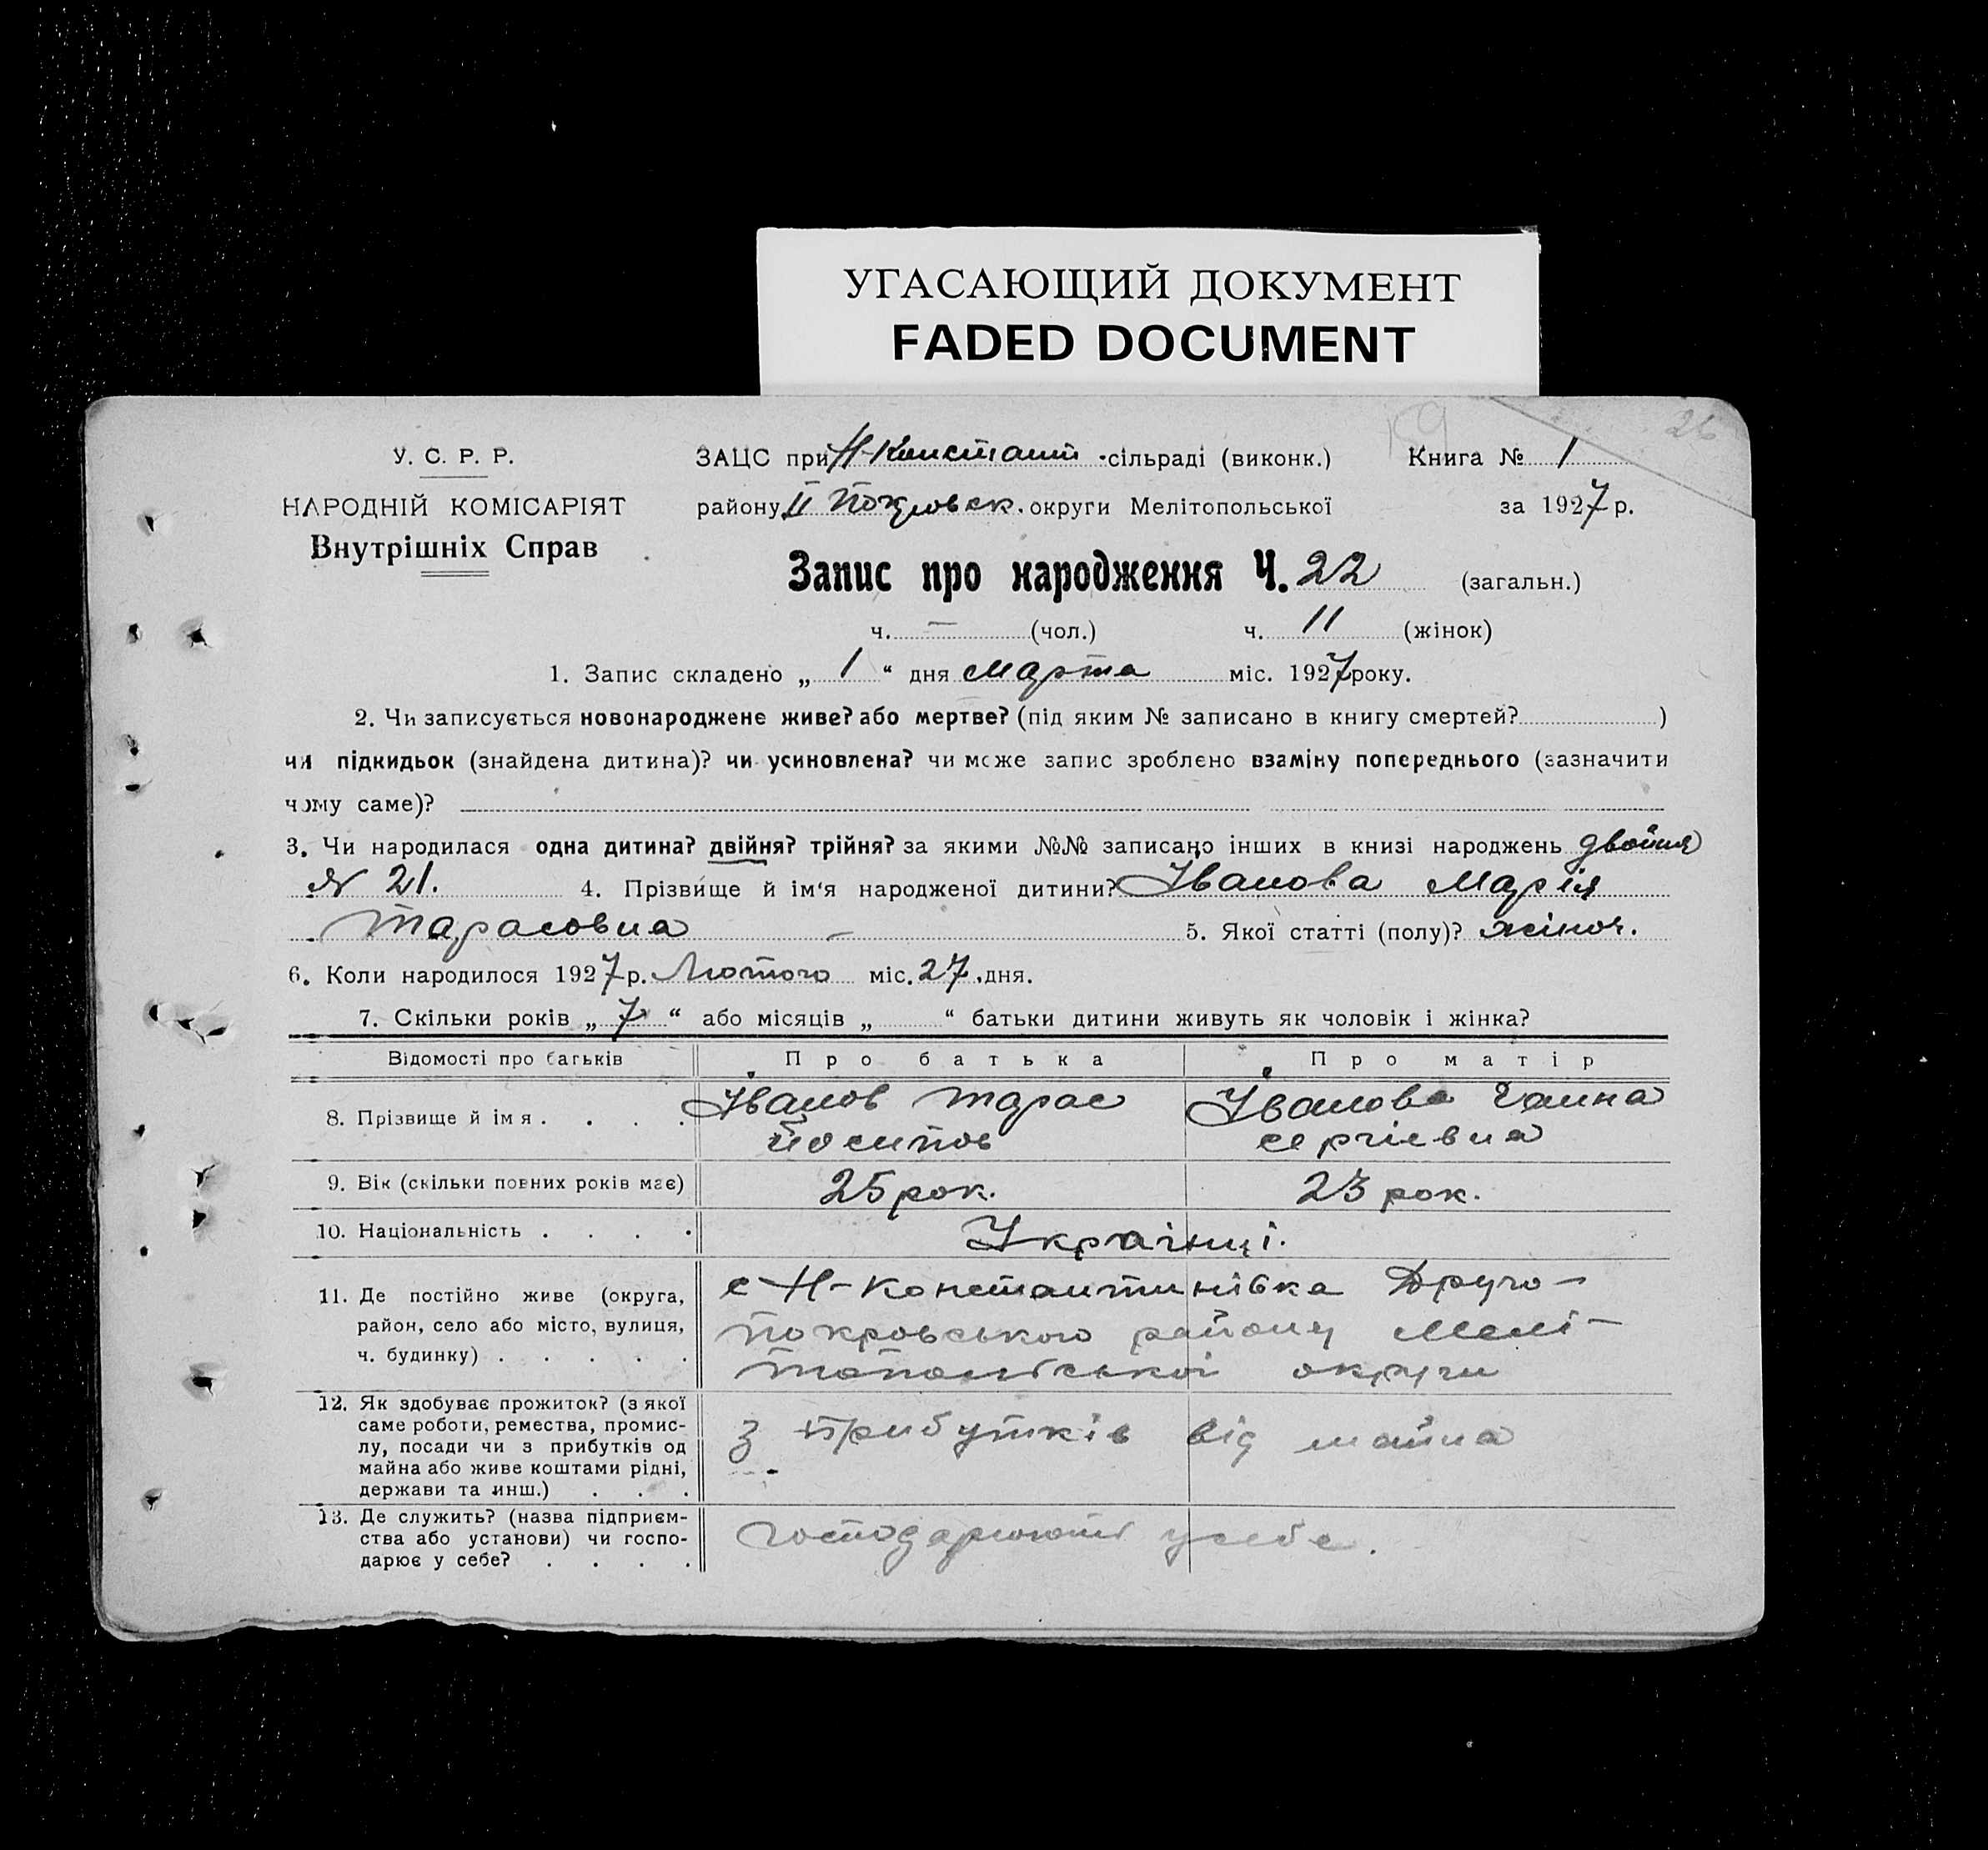 УГАСАЮЩИЙ ДОКУМЕНТ
FADED DOCUMENT
26
159
У. С. Р. Р.
НАРОДНІЙ КОМІСАРІЯТ
Внутрішніх Справ
ЗАЦС при Н-Констант. сільраді (виконк.) Книга № 1
району ІІ Покровськ. округи Мелітопольської за 1927 р.
Запис про народження Ч. 22 (загальн.)
ч. — (чол.) ч. 11 (жінок)
1. Запис складено „ 1 “ дня марта міс. 1927 року.
2. Чи записується новонароджене живе? або мертве? (під яким № записано в книгу смертей? )
чи підкидьок (знайдена дитина)? чи усиновлена? чи може запис зроблено взаміну попереднього (зазначити
чому саме)?
3. Чи народилася одна дитина? двійня? трійня? за якими №№ записано інших в книзі народжень двойня
№ 21. 4. Прізвище й ім‘я народженої дитини? Іванова Марія
Тарасовна — 5. Якої статті (полу)? жіноч.
6. Коли народилося 1927 р. Лютого міс. 27 дня.
7. Скільки років „ 7 “ або місяців „ “ батьки дитини живуть як чоловік і жінка?
Відомості про батьків Про батька Про матір
8. Прізвище й імя . . . . Іванов Тарас Йосипов Іванова Ганна сергіевна
9. Вік (скільки повних років має) 25 рок. 23 рок.
10. Національність . . . . Українці.
11. Де постійно живе (округа, с Н-Константинівка Друго-
район, село або місто, вулиця, Покровського району Мелі-
ч. будинку) . . . . . топольської округи
12. Як здобуває прожиток? (з якої
саме роботи, ремества, промис-
лу, посади чи з прибутків од з прибутків від майна
майна або живе коштами рідні,
держави та инш.) . . .
13. Де служить? (назва підприєм-
ства або установи) чи госпо- господарюють у себе.
дарює у себе? . . . .